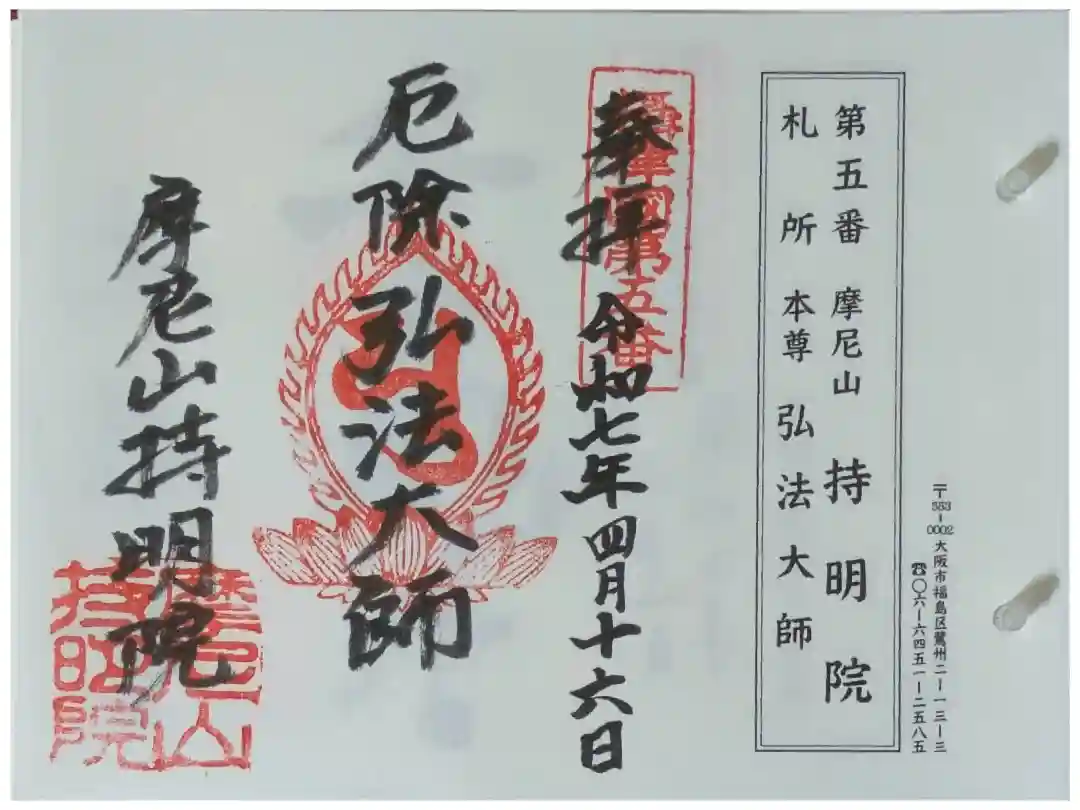 〒553-0002 大阪市福島区鷺州二ー一三ー三
☎〇六ー六四五一ー二五八五
第五番 摩尼山 持明院
札所本尊 弘法大師
奉拝 令和七年四月十六日
攝津國第五番
厄除 弘法大師
摩尼山持明院
摩尼山
持明院